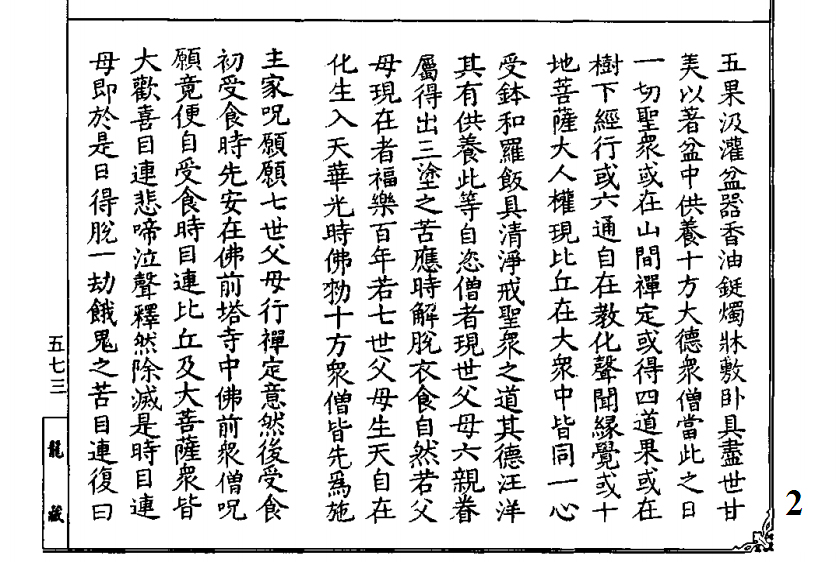 五果汲灌盆器香油鋌燭牀敷卧具盡世甘
美以著盆中供養十方大德衆僧當此之日
一切聖衆或在山間禪定或得四道果或在
樹下經行或六通自在教化聲聞緣覺或十
地菩薩大人權現比丘在大衆中皆同一心
受鉢和羅飯具清淨戒聖衆之道其德汪洋
其有供養此等自恣僧者現世父母六親眷
屬得出三塗之苦應時解脫衣食自然若父
母現在者福樂百年若七世父母生天自在
化生入天華光時佛勑十方衆僧皆先爲施
主家呪願願七世父母行禪定意然後受食
初受食時先安在佛前塔寺中佛前衆僧呪
願竟便自受食時目連比丘及大菩薩衆皆
大歡喜目連悲啼泣聲釋然除滅是時目連
母即於是日得脫一劫餓鬼之苦目連復曰
五七三
龍藏
2